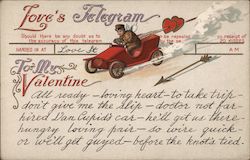 Love's Telegram
Should there be any doubt as to the accuracy of this telegram
be repeated on receipt of
HANDED IN AT Love St A.M.
To My Valentine
All ready - loving heart - to take trip
don't give me the slip - doctor not far -
hired Dan Cupid's car - he'll get us there -
hungry loving pair - so wire quick
or we'll get guyed - before the knot's tied